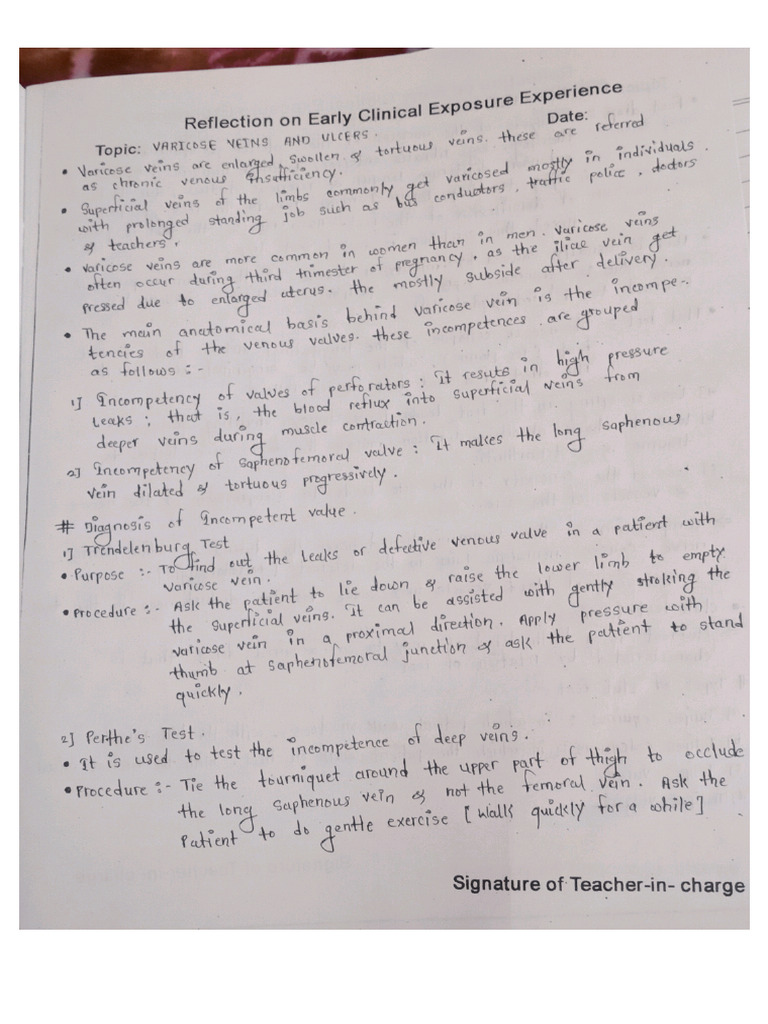 Reflection on Early Clinical Exposure Experience
Topic: VARICOSE VEINS AND ULCERS. Date:
• Varicose veins are enlarged, swollen & tortuous veins. these are referred
as chronic venous insufficiency.
• Superficial veins of the limbs commonly get varicosed mostly in individuals.
with prolonged standing job such as bus conductors, traffic police, doctors
& teachers.
• Varicose veins are more common in women than in men. Varicose veins
often occur during third trimester of pregnancy, as the iliac vein get
pressed due to enlarged uterus. the mostly subside after delivery.
• The main anatomical basis behind varicose vein is the incompe-
tencies of the venous valves. these incompetences are grouped
as follows :-
1] Incompetency of valves of perforators : It results in high pressure
Leaks ; that is, the blood reflux into superficial veins from
deeper veins during muscle contraction.
2] Incompetency of saphenofemoral valve : It makes the long saphenous
vein dilated & tortuous progressively.
# Diagnosis of Incompetent value.
1] Trendelenburg Test
• Purpose :- To find out the leaks or defective venous valve in a patient with
varicose vein.
• Procedure :- Ask the patient to lie down & raise the lower limb to empty
the superficial veins. It can be assisted with gently stroking the
varicose vein in a proximal direction. Apply pressure with
thumb at saphenofemoral junction & ask the patient to stand
quickly.
2] Perthe's Test.
• It is used to test the incompetence of deep veins.
• Procedure :- Tie the tourniquet around the upper part of thigh to occlude
the long saphenous vein & not the femoral vein. Ask the
Patient to do gentle exercise [Walk quickly for a while]
Signature of Teacher-in- charge